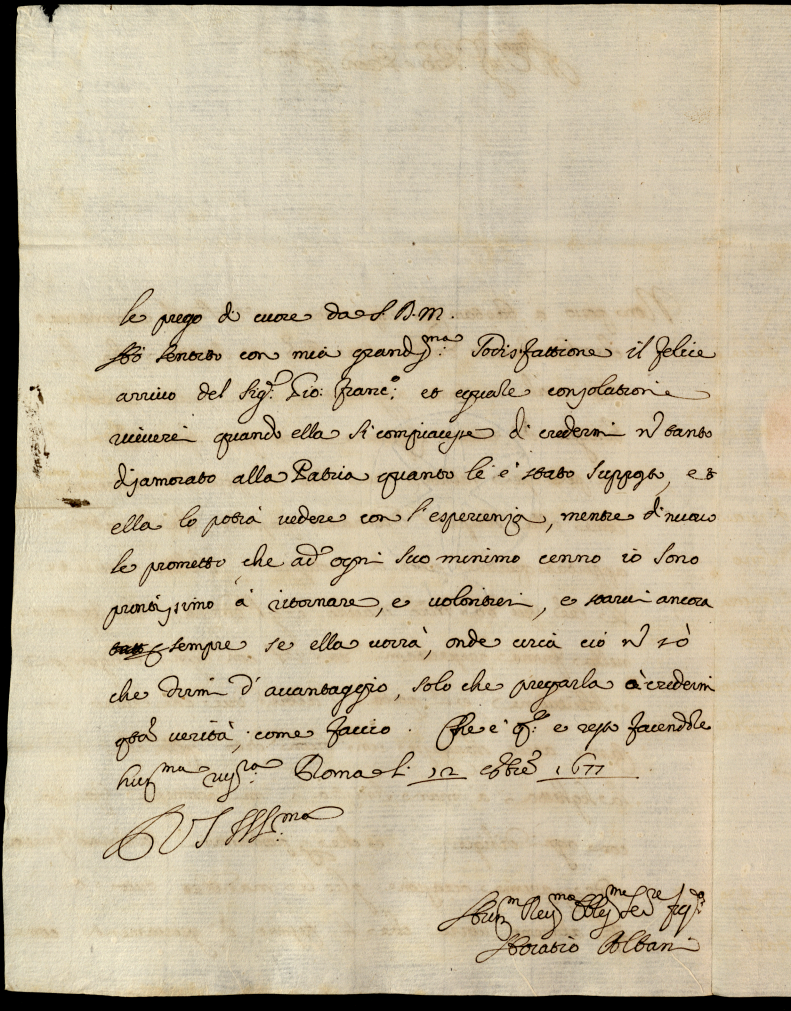 le prego di cuore da S. D. M.
Hò sentito con mia grandma: sodisfattione il felice
arrivo del Sigr. Gio: Franco: et eguale consolatione
riceverei quando ella si compiacesse di credermi nō tanto
disamorato alla Patria quanto le è stato supposto, et
ella lo potrà vedere con l'esperienza, mentre di nuovo
le prometto, che ad ogni suo minimo cenno io sono
prontissimo à ritornare, e volontieri, e starvi ancora
sempre se ella vorrà, onde circa ciò nō sò
che dirmi d'avantaggio, solo che pregarla à credermi
qsta verità, come faccio. Che è qto: e resto facendole
humma rivza. Roma li 12 Xbre 1677
D V S Illma
Humo Revmo Oblmo Serre
Horatio Albani